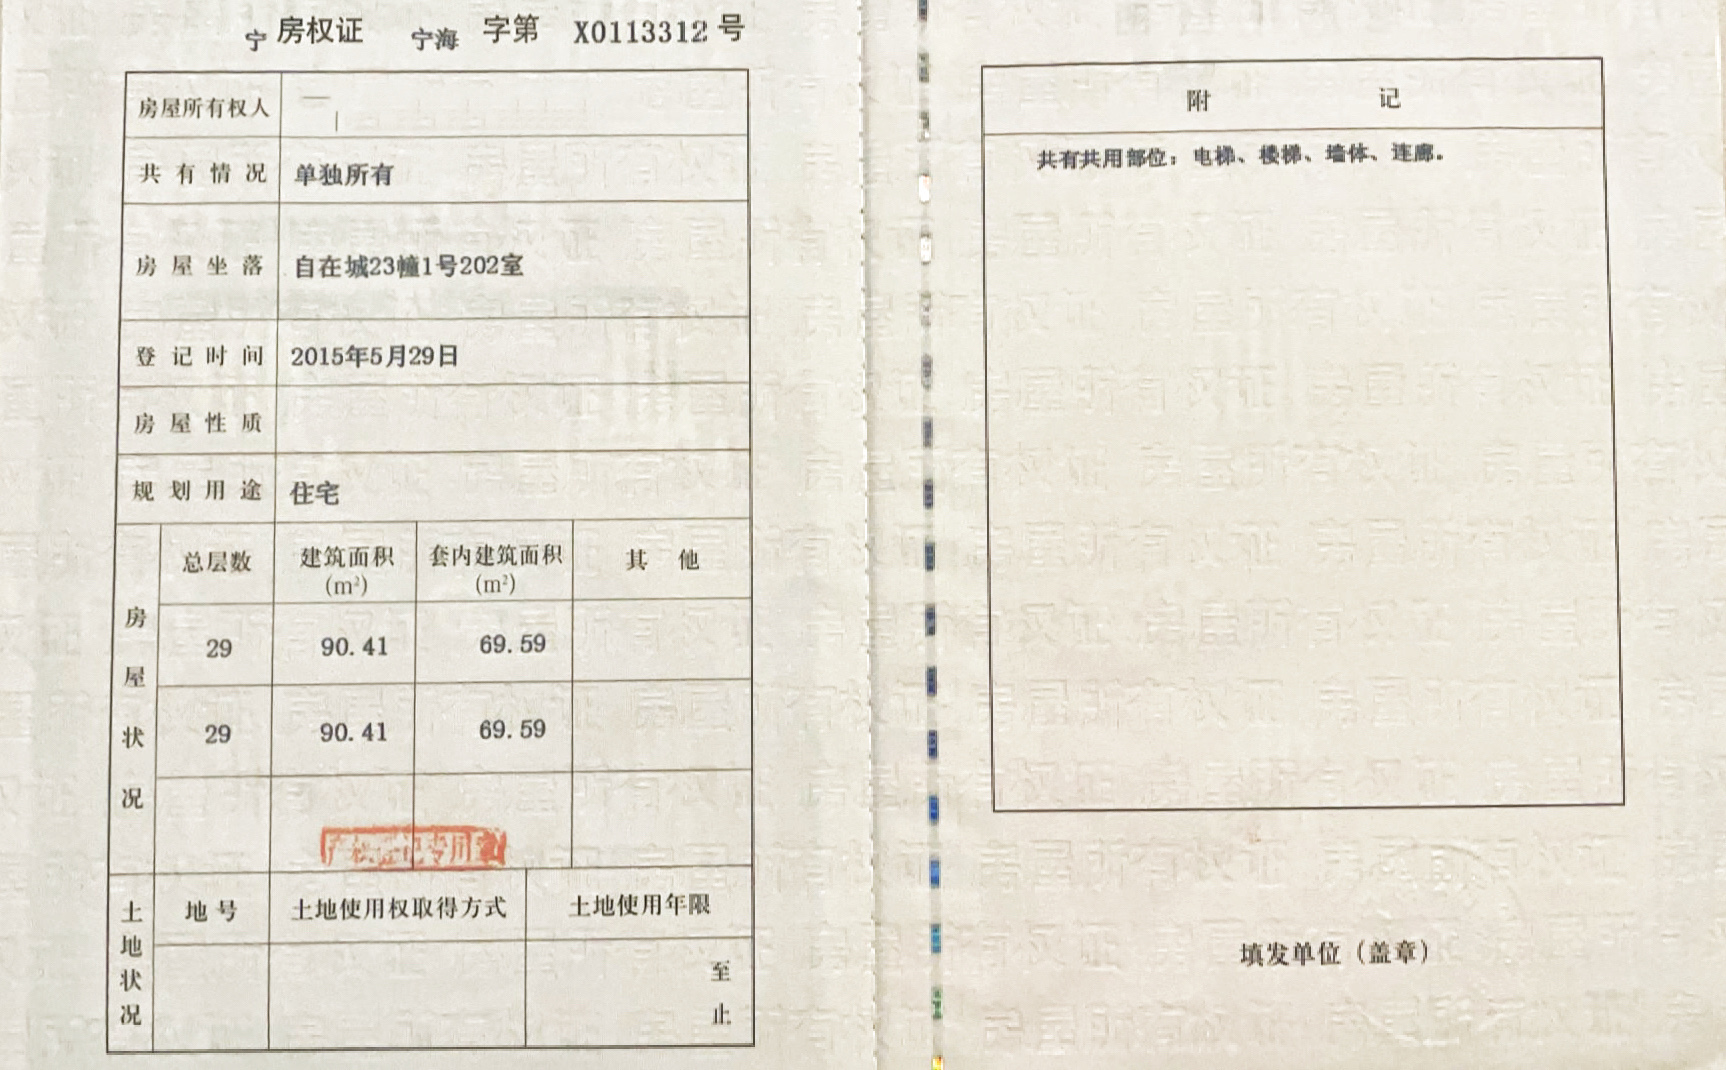 宁 房权证 宁海 字第 X0113312 号
房屋所有权人
共有情况 单独所有
房屋坐落 自在城23幢1号202室
登记时间 2015年5月29日
房屋性质
规划用途 住宅
房屋状况
总层数 建筑面积(m²) 套内建筑面积(m²) 其他
29 90.41 69.59
29 90.41 69.59
产权登记专用章
土地状况
地号 土地使用权取得方式 土地使用年限
至
止
附 记
共有共用部位：电梯、楼梯、墙体、连廊。
填发单位（盖章）